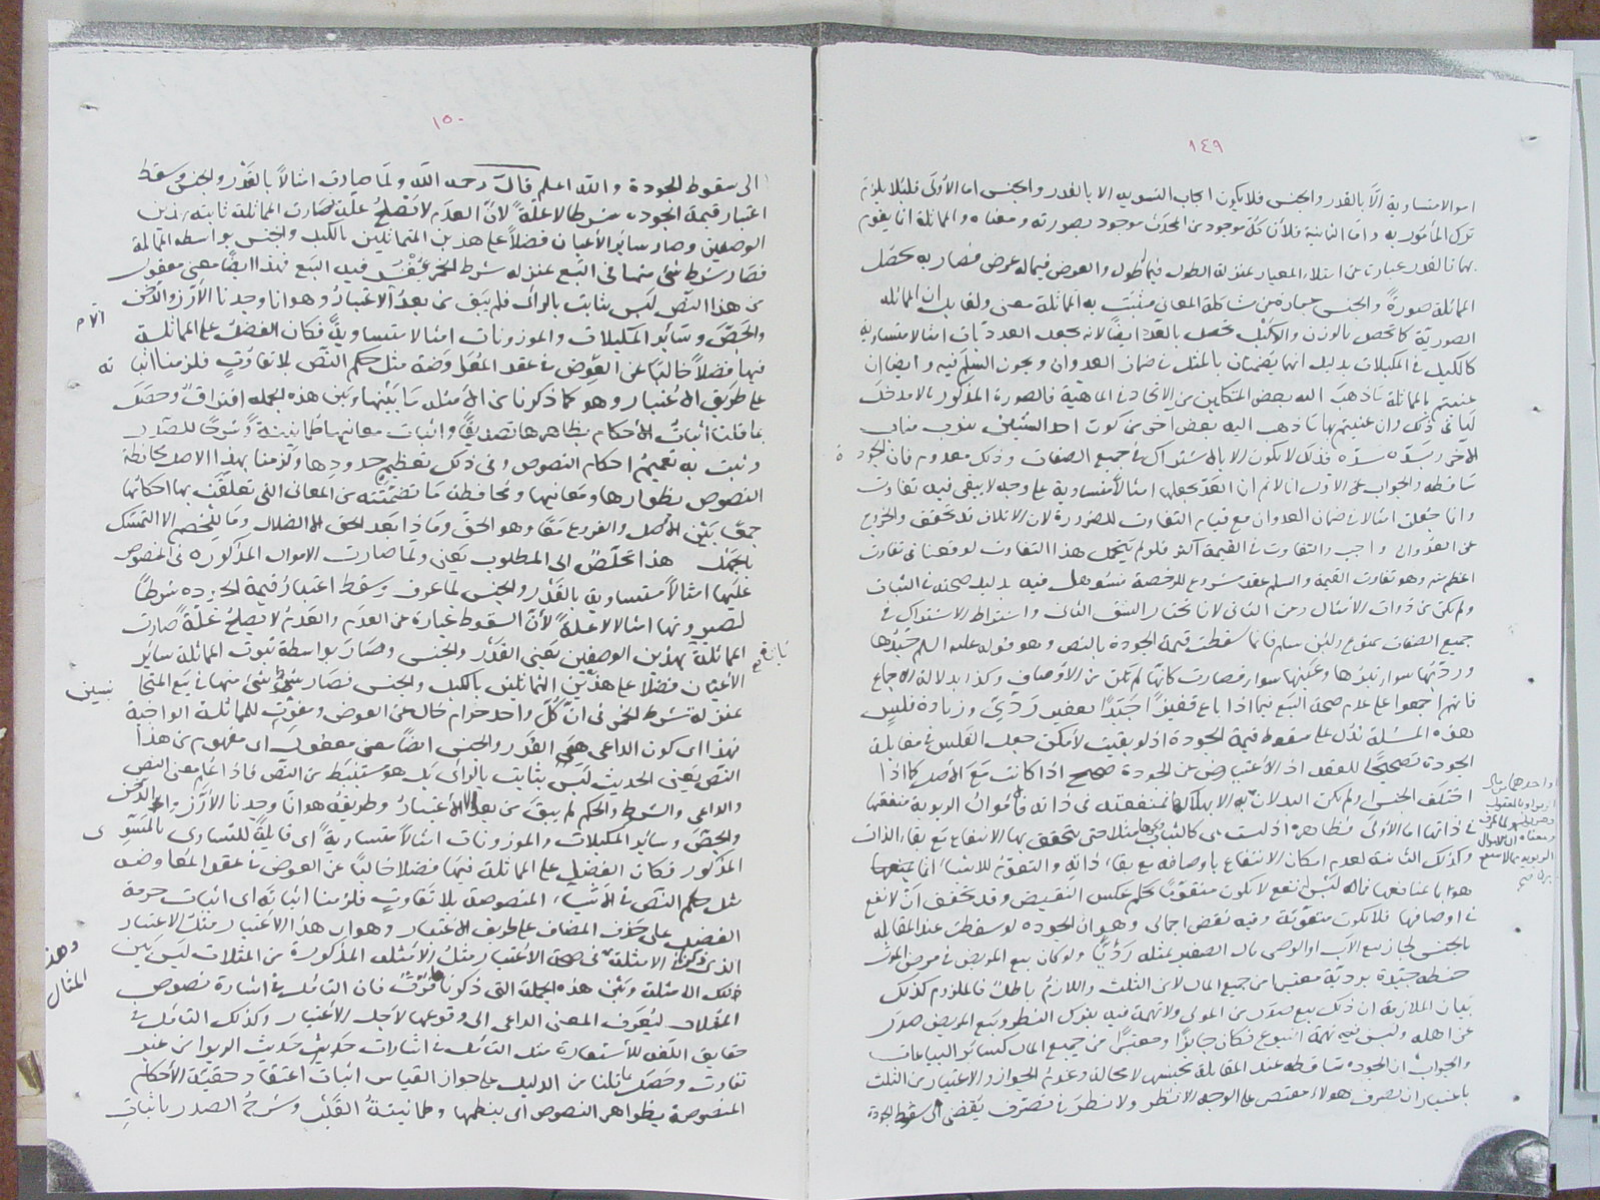 ١٤٩
اموالا متساوية الا بالقدر والجنس فلا يكون ايجاب التسوية الا بالقدر والجنس اما الأولى فلئلا يلزم
ترك المأمور به واما الثانية فلأن كل موجود من المحدث موجود بصورته ومعناه والمماثلة انما يقوم
بهما فالقدر عبارت عن امتلاء المعيار بمنزلة الطول فيما له طول والعرض فيما له عرض فصار به يحصل
المماثلة صورةً والجنس عبارة عن مشاكلة المعاني فثبتت به المماثلة معنى ولقايل ان المماثلة
الصورية كما تحصل بالوزن والكيل تحصل بالعدد ايضاً لانه يجعل العدديات امثالا متساوية
كالكيل في المكيلات بدليل انها يضمنان بالمثل في ضمان العدوان ويجوز السلم فيه وايضا ان
عنيتم بالمماثلة ما ذهب اليه بعض المتكلمين من الاتحاد في الماهية فالصورة المذكور بالا مدخل
لها في ذلك وان عنيتم بها ما ذهب اليه بعض آخر من كون احد الشيئين ينوب مناب
الآخر ويسد مسدّه فذلك لا يكون الا بالاشتراك في جميع الصفات وذلك معدوم فان الجودة
ساقطه والجواب عن الاول انا لا نم ان العدّ يجعلها امثالاً متساوية على وجه لا يبقى فيه تفاوت
وانما جعلت امثالا في ضمان العدوان مع قيام التفاوت للضرورة لان الاتلاف قد تحقق والخروج
عن العدوان واجب والتفاوت في القيمة اكثر فلو لم يتحمل هذا التفاوت لوقعنا في تفاوت
اعظم منه وهو تفاوت القيمة والسلم عقد مشروع للرخصة فتسوهل فيه بدليل صحته في الثياب
ولم تكن من ذوات الأمثال وعن الثاني لانا نختار الشق الثاني واشتراط الاشتراك في
جميع الصفات ممنوع ولئن سلم فانما سقطت قيمة الجودة بالنص وهو قوله عليه السلم جيدها
ورديّها سواء تبرها وعينها سواء فصارت كانّها لم تكن من الأوصاف وكذا بدلالة الاجماع
فانهم اجمعوا على عدم صحة البيع فيما اذا باع قفيزاً جيداً بقفيز رديّ وزيادة فلسٍ
هذه المسئلة تدل على سقوط قيمة الجودة اذ لو بقيت لأمكن جعل الفلس في مقابلة
الجودة تصحيحاً للعقد اذ الاعتياض عن الجودة صحيح اذا كانت مع الأصل كما اذا
اختلف الجنس ولم يكن البدلان
في ذاتها اما الأولى فظاهرة اذ ليست هي كالثياب مثلا حتى يتحقق بها الانتفاع مع بقاء الذات
وكذلك الثانية لعدم امكان الانتفاع باوصافه مع بقاء ذاته والتقوّم للاشياء انما
هو بمنافعها فما ليس انتفع لا يكون متقوماً بحكم عكس النقيض وقد تحقق أن لا نفع
في اوصافها فلا يكون متقومة وفيه نقض اجمالي وهو ان الجودة لو سقطت عند المقابلة
بالجنس لجاز بيع الأب او الوصي مال الصغير بمثله رديّاً ولو كان بيع المريض في مرض الموت
حنطة جيّدة برديّة معتبرا من جميع المال لا من الثلث واللازم باطل فالملزوم كذلك
بيان الملازمة ان ذلك بيع صدر من المولى ولا تهمة فيه بترك النظر وبيع المريض صدر
عن اهله وليس فيه تهمة التبرع فكان جايزاً ومعتبراً من جميع المال كسائر البياعات
والجواب ان الجودة ساقطه عند المقابلة بجنسها لا محالة وعدم الجواز والاعتبار من الثلث
باعتبار ان تصرف هولاء مقتصر على الوجه الانظر ولا نظر في تصرّف يفضي الى سقوط الجودة
١٥٠
الى سقوط الجودة والله اعلم قال رحمه الله ولما صارت امثالاً بالقدر والجنس وسقط
اعتبار قيمة الجودة شرطا لا علةً لأن العدم لا تصلح علة صارت المماثلة ثابتة بهذين
الوصفين وصار سائر الأعيان فضلاً على هذين المتماثلين بالكيل والجنس بواسطه المماثلة
فصار شرط شئ منها في البيع بمنزله شرط الخمر فيفسد فيه البيع فهذا ايضاً معنى معقول
من هذا النص ليس بثابت بالرأى فلم يبق من بعد الا الاعتبار وهو انا وجدنا الأرز والدخن
والجصّ وسائر المكيلات والموزونات امثالا متساويةً فكان الفضل على المماثلة
فيها فضلاً خالياً عن العوض في عقد المعاوضة مثل حكم النص بلا تفاوتٍ فلزمنا اثباته
على طريق الاعتبار وهو كما ذكرنا من الأمثله ما بينها وبين هذه الجمله افتراق وحصل
بما قلنا اثبات الأحكام بظاهرها تصديقاً واثبات معانيها طمانينة وشرحا للصدر
وثبت به تعميم احكام النصوص وفي ذلك تعظيم حدودها ولزمنا بهذا الاصل محافظة
النصوص بظواهرها ومعانيها ومحافظة ما تضمنته من المعاني التى تعلقت بها احكامها
جمعاً بين الأصل والفروع معاً وهو الحق وما ذا بعد الحق الا الضلال وما للخصم الا التمسك
بالجهل هذا تخلّص الى المطلوب يعني ولما صارت الاموال المذكورة في النصوص
عليها امثالاً متساوية بالقدر والجنس لما عرف وسقط اعتبار قيمة الجودة شرطاً
لصيرورتها امثالا لا علةً لأن السقوط عبارة عن العدم والعدم لا يصلح علّةً صارت
المماثلة بهذين الوصفين يعني القدر والجنس وصار بواسطة ثبوت المماثلة سائر
الأعيان فضلاً على هذين المتماثلين بالكيل والجنس فصار شرط شئ منها في بيع المتجانسين
بمنزلة شرط الخمر في ان كل واحد حرام خال عن العوض ومفوّت للمماثلة الواجبة
فهذا اى كون الداعى هو القدر والجنس ايضاً معنى معقول اى مفهوم من هذا
النص يعنى الحديث ليس بثابت بالرأى بل هو مستنبط من النص فاذا علم معنى النص
والداعى والشرط والحكم لم يبق من بعد الا الاعتبار وطريقه هو انا وجدنا الأرز والدخن
والجصّ وسائر المكيلات والموزونات امثالاً متساويةً اى قابلةً للتساوى بالمسوّى
المذكور فكان الفضل على المماثلة فيها فضلا خالياً عن العوض في عقد المعاوضة
مثل حكم النص في الأشياء المنصوصة بلا تفاوتٍ فلزمنا اثباته اى اثبات حرمة
الفضل على حذف المضاف على طريق الاعتبار وهو اى هذا الأعتبار مثل الاعتبار
الذى ذكرنا الامثلة في صحة الأعتبار مثل الأمثلة المذكورة من المثلات ليس بين
تلك الامثلة وبين هذه الجملة التى ذكرنا فرق فان التامل في اشارة نصوص
المثلات ليعرف المعنى الداعى الى وقوعها لأجل الأعتبار وكذلك التامل في
حقايق اللغة للأستعارة مثل التامل في اشارات حديث الربوا من غير
تفاوت وحصل بما قلنا من الدليل على جواز القياس اثبات اعتقاد حقيّة الأحكام
المنصوصة بظواهر النصوص اى بنظمها وطمانينة القلب وشرح الصدر باثبات